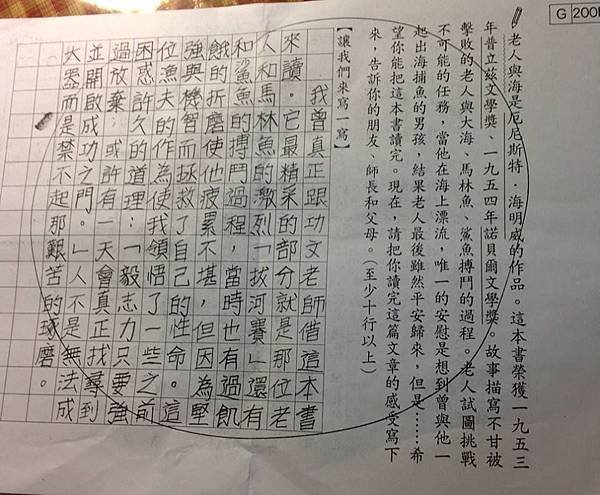 G 200
老人與海是厄尼斯特．海明威的作品。這本書榮獲一九五三
年普立茲文學獎、一九五四年諾貝爾文學獎。故事描寫不甘被
擊敗的老人與大海、馬林魚、鯊魚搏鬥的過程。老人試圖挑戰
不可能的任務，當他在海上漂流，唯一的安慰是想到曾與他一
起出海捕魚的男孩，結果老人最後雖然平安歸來，但是……希
望你能把這本書讀完。現在，請把你讀完這篇文章的感受寫下
來，告訴你的朋友、師長和父母。（至少十行以上）
【讓我們來寫一寫】
我曾真正跟功文老師借這本書
來讀。它最精采的部分就是那位老
人和馬林魚的激烈「拔河賽」還有
和鯊魚的搏鬥過程，當時也有過飢
餓的折磨使他疲累不堪，但因為堅
強與機智而拯救了自己的性命。這
位漁夫的作為使我領悟了一些之前
困惑許久的道理：「毅志力只要強
過放棄，或許有一天會真正找尋到
並開啟成功之門。」人不是無法成
大器而是禁不起那艱苦的琢磨。